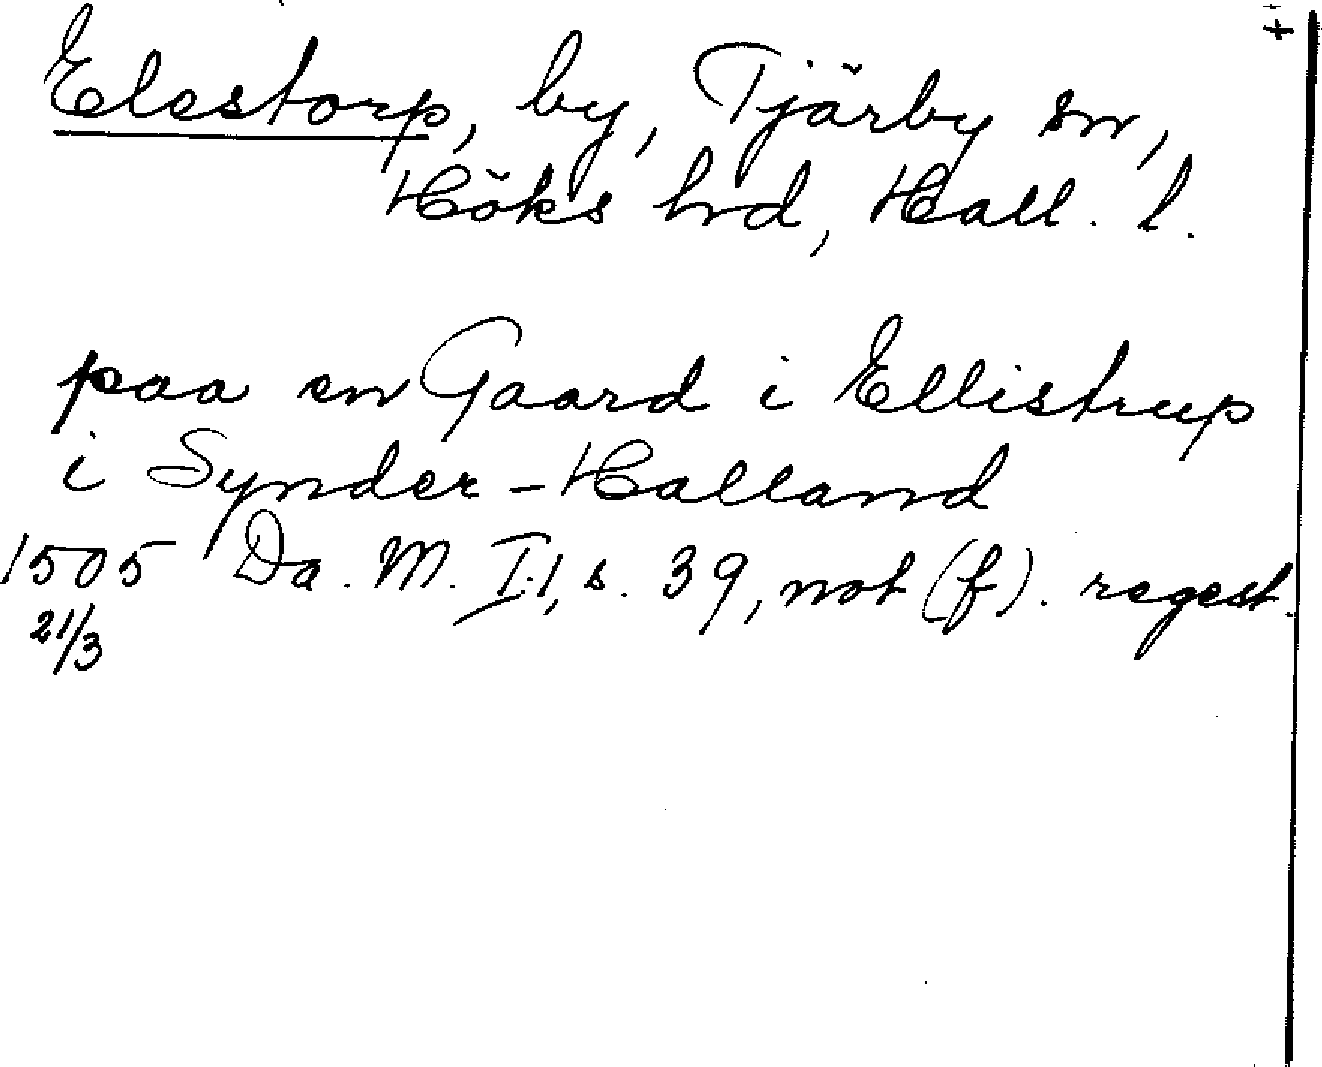 Elestorp, by, Tjärby sn,
Höks hrd, Hall. l.
paa en Gaard i Ellistrup
i Synder-Halland
1505 Da. M. I:1, s. 39, not (f). regest.
21/3